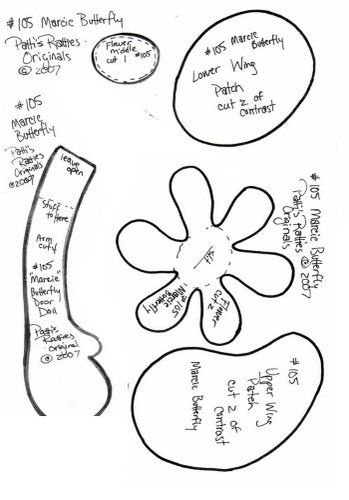 #105 Marcie Butterfly
Patti's Ratties
Originals
© 2007
Flower
middle
cut 1 #105
#105 Marcie Butterfly
Lower Wing
Patch
cut 2 of
contrast
#105
Marcie
Butterfly
Patti's
Ratties
Originals
© 2007
leave
open
stuff
to here
Arm
cut 4
#105
"Marcie"
Butterfly
Door
Doll
Patti's
Ratties
Original
© 2007
#105 Marcie Butterfly
Patti's Ratties
Originals
© 2007
slit
Flower
cut 2
#105
Marcie
Butterfly
#105
Upper Wing
Patch
cut 2 of
contrast
Marcie Butterfly